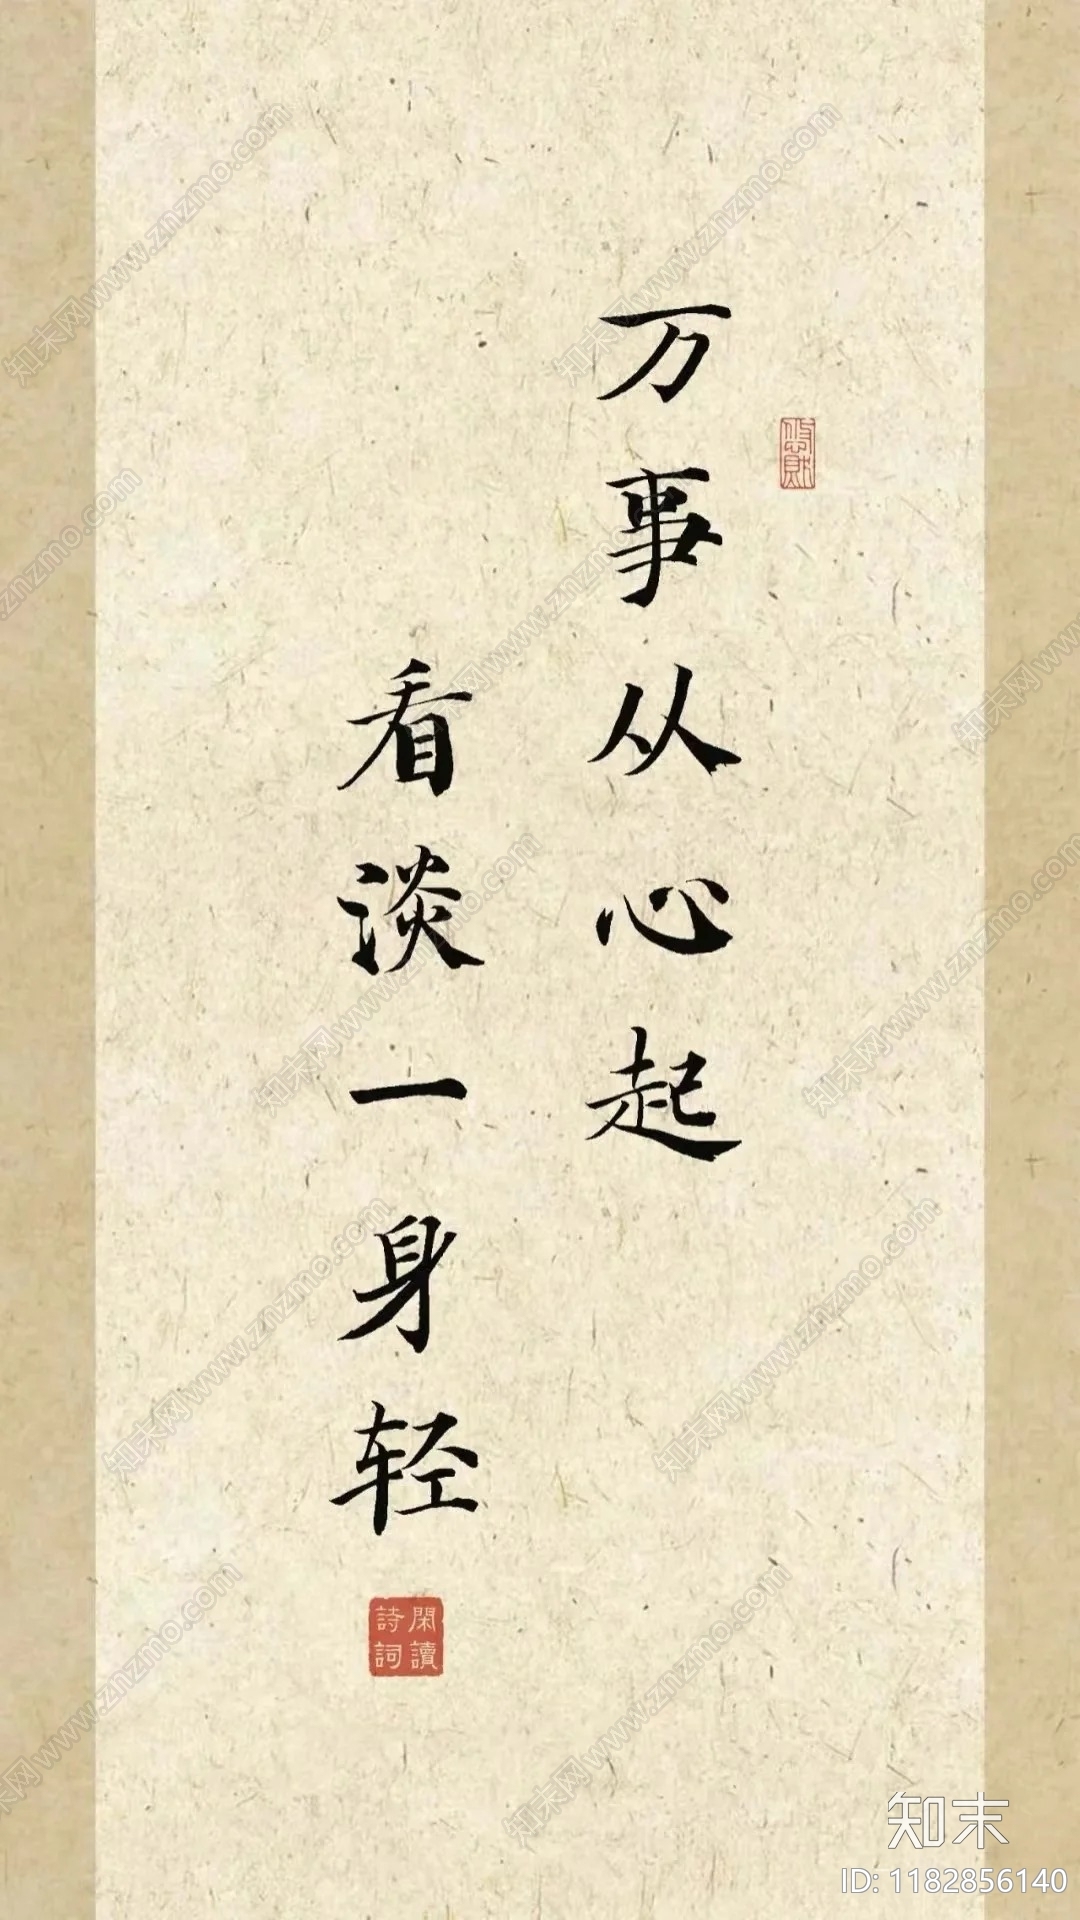 万事从心起
看淡一身轻
閑讀
詩詞
知末
ID: 1182856140
知末网www.znzmo.com